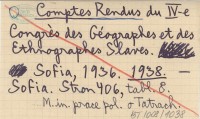 Q Comptes Rendus du IV-e
Congrès des Géographes et des
Ethnographes Slaves.
— Sofia, 1936. 1938. —
Sofia. Stron 406, tabl. 8.
M. in. prace pol. o Tatrach.
AT 1008/1038